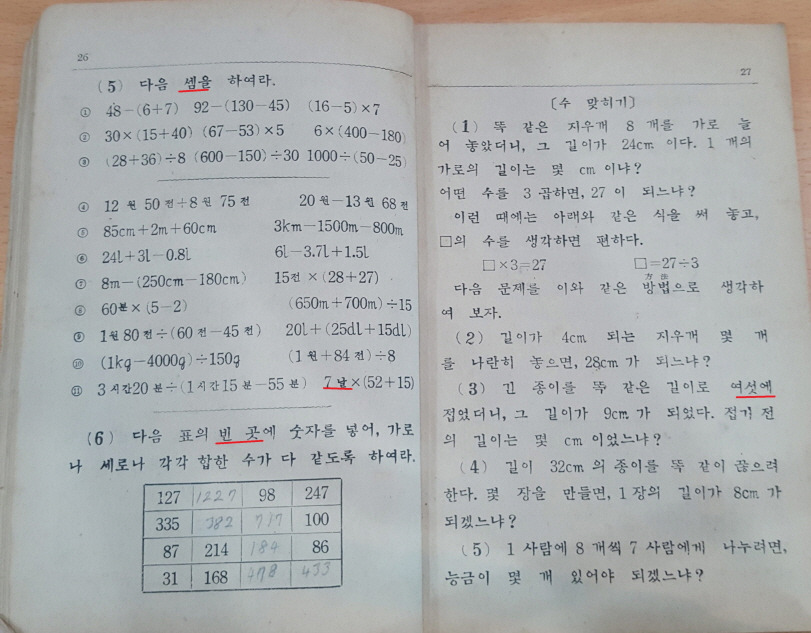 26
(5) 다음 셈을 하여라.
① 48-(6+7) 92-(130-45) (16-5)×7
② 30×(15+40) (67-53)×5 6×(400-180)
③ (28+36)÷8 (600-150)÷30 1000÷(50-25)
④ 12 원 50 전+8 원 75 전 20 원-13 원 68 전
⑤ 85cm+2m+60cm 3km-1500m-800m
⑥ 24l+3l-0.8l 6l-3.7l+1.5l
⑦ 8m-(250cm-180cm) 15전×(28+27)
⑧ 60분×(5-2) (650m+700m)÷15
⑨ 1원 80전÷(60 전-45 전) 20l+(25dl+15dl)
⑩ (1kg-4000g)÷150g (1 원+84 전)÷8
⑪ 3 시간20 분÷(1 시간15 분-55 분) 7 날×(52+15)
(6) 다음 표의 빈 곳에 숫자를 넣어, 가로
나 세로나 각각 합한 수가 다 같도록 하여라.
127 1227 98 247
335 382 100
87 214 184 86
31 168
27
[수 맞히기]
(1) 똑 같은 지우개 8 개를 가로 늘
어 놓았더니, 그 길이가 24cm 이다. 1 개의
가로의 길이는 몇 cm 이냐?
어떤 수를 3 곱하면, 27 이 되느냐?
이런 때에는 아래와 같은 식을 써 놓고,
□의 수를 생각하면 편하다.
□×3=27 □=27÷3
方法
다음 문제를 이와 같은 방법으로 생각하
여 보자.
(2) 길이가 4cm 되는 지우개 몇 개
를 나란히 놓으면, 28cm 가 되느냐?
(3) 긴 종이를 똑 같은 길이로 여섯에
접었더니, 그 길이가 9cm 가 되었다. 접기 전
의 길이는 몇 cm 이었느냐?
(4) 길이 32cm 의 종이를 똑 같이 끊으려
한다. 몇 장을 만들면, 1 장의 길이가 8cm 가
되겠느냐?
(5) 1 사람에 8 개씩 7 사람에게 나누려면,
능금이 몇 개 있어야 되겠느냐?